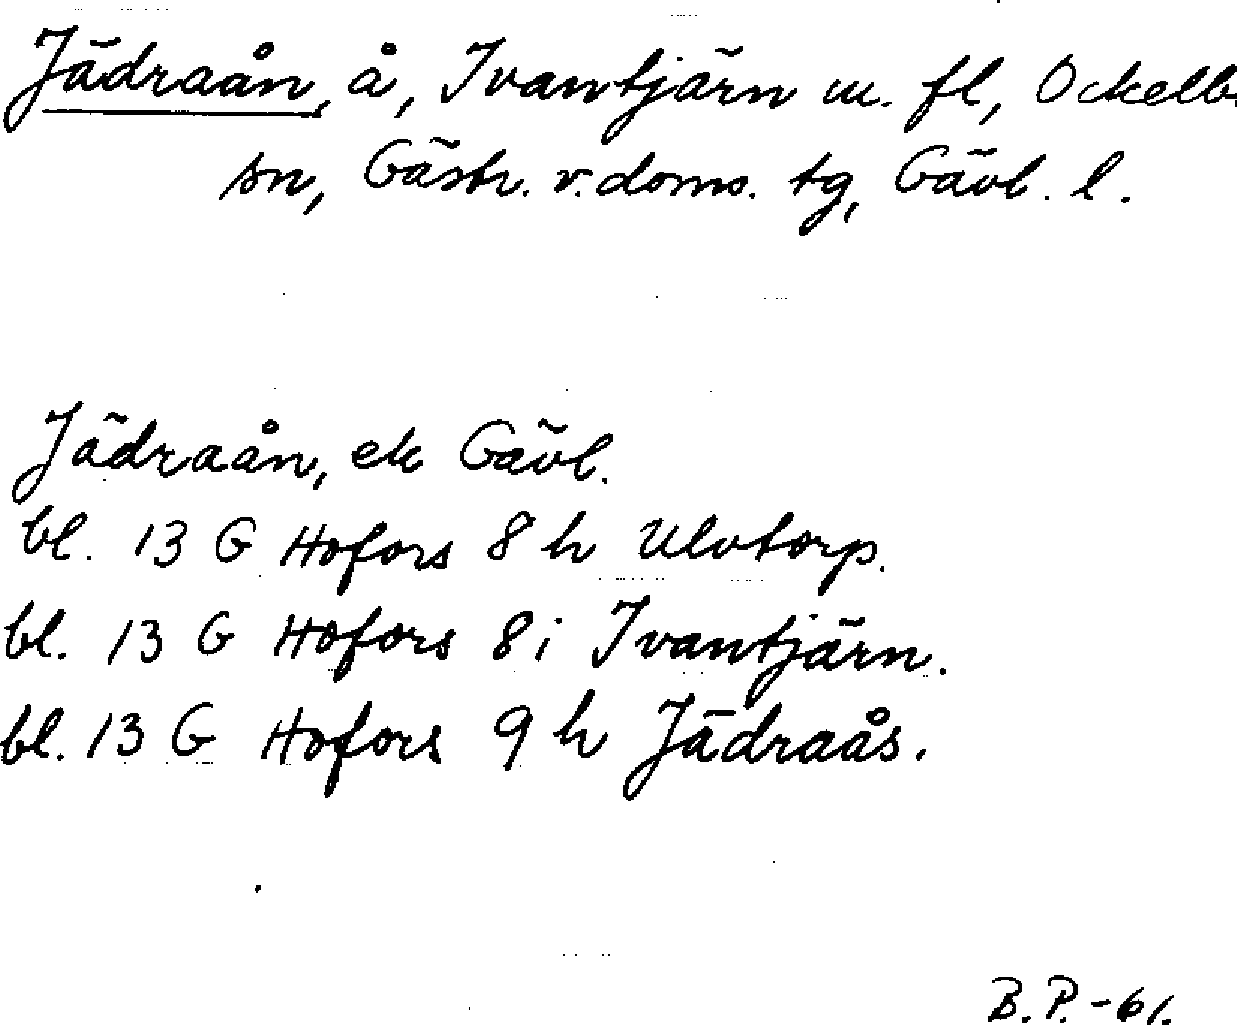 Jädraån, å, Ivantjärn m. fl, Ockelb.
sn, Gästr. v. doms. tg, Gävl. l.
Jädraån, ek Gävl.
bl. 13 G Hofors 8 h Ulvtorp.
bl. 13 G Hofors 8 i Ivantjärn.
bl. 13 G Hofors 9 h Jädraås.
B.P.-61.